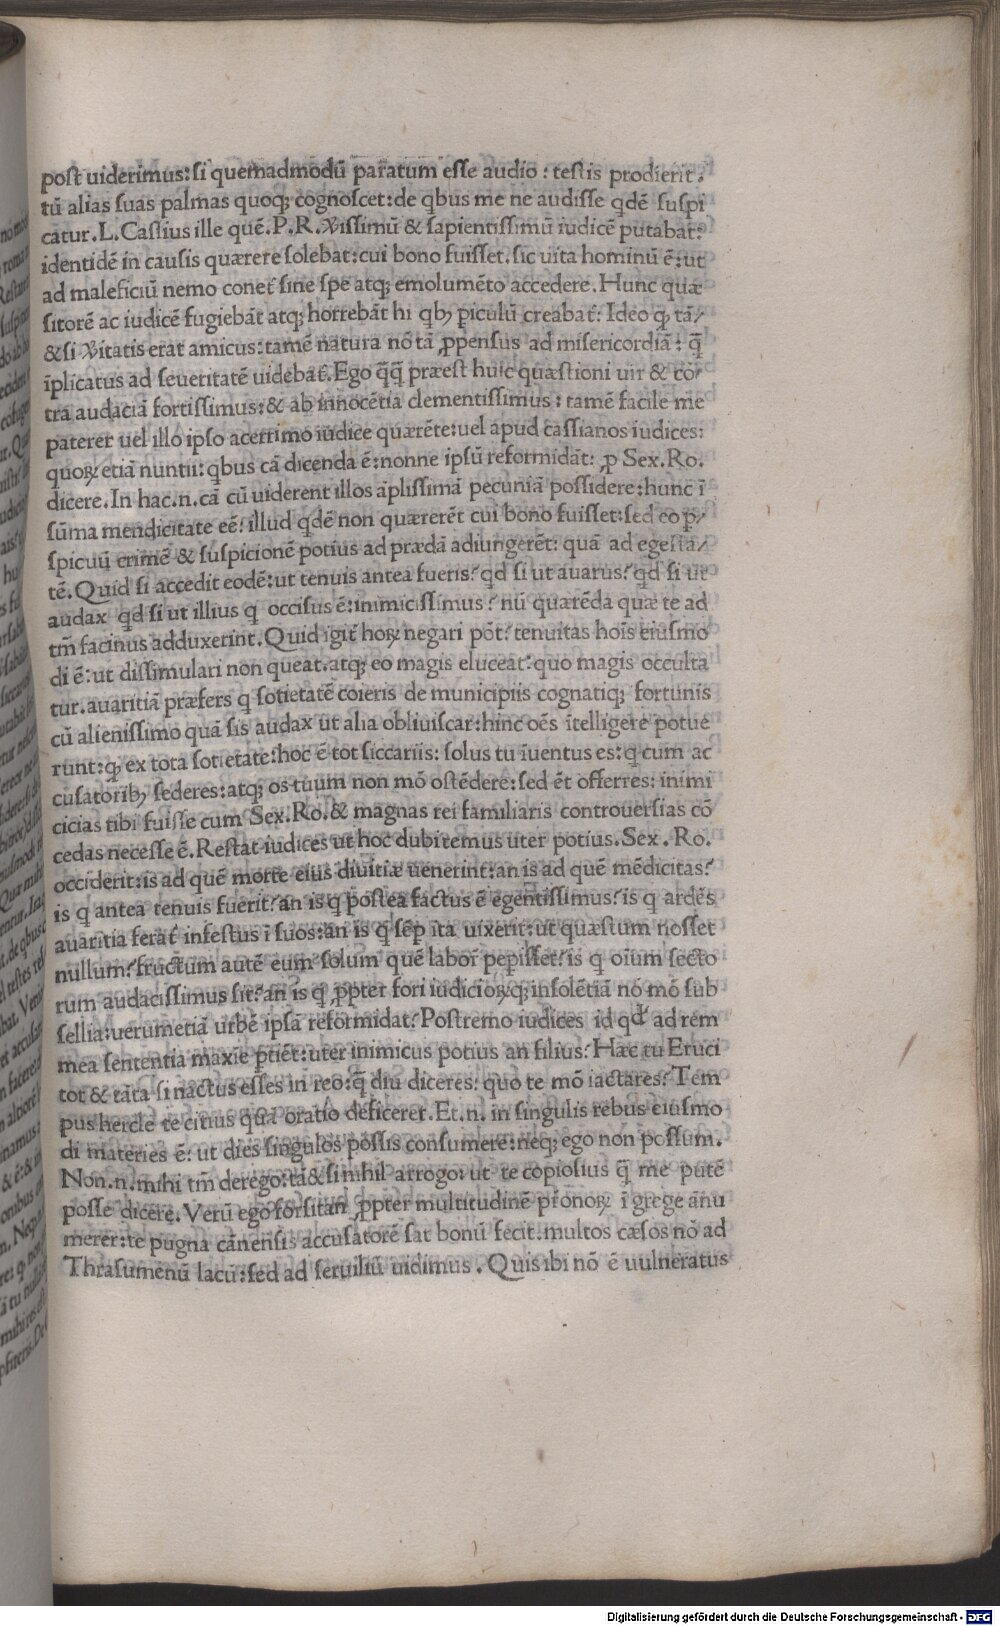 post uiderimus: si quemadmodū paratum esse audio: testis prodierit:
tū alias suas palmas quoq; cognoscet: de qbus me ne audisse qdē suspi
catur. L. Cassius ille quē. P. R. Vissimū & sapientissimū iudicē putabat:
identidē in causis quærere solebat: cui bono fuisset. sic uita hominū ē: ut
ad maleficiū nemo conet̄ sine spe atq; emolumēto accedere. Hunc quæ
sitorē ac iudicē fugiebāt atq; horrebāt hi qbꝫ ꝑiculū creabat̄: Ideo ꝙ tā/
& si Vitatis erat amicus: tamē natura nō tā ꝓpensus ad misericordiā: q̄
īplicatus ad seueritatē uidebat̄. Ego q̄q̄ præest huic quæstioni uir & cō/
tra audaciā fortissimus: & ab innocētia clementissimus: tamē facile me
paterer uel illo ipso acerrimo iudice quærēte: uel apud cassianos iudices:
quoꝝ etiā nuntii: qbus cā dicenda ē: nonne ipsū reformidāt: ꝓ Sex. Ro.
dicere. In hac. n. cā cū uiderent illos āplissimā pecuniā possidere: hunc ī
sūma mendicitate eē: illud qdē non quærerēt cui bono fuisset: sed eo ꝑ/
spicuū crimē & suspicionē potius ad prædā adiungerēt: quā ad egesta/
tē. Quid si accedit eodē: ut tenuis antea fueris? qd si ut auarus? qd si ut
audax qd si ut illius q occisus ē: inimicissimus? nū quærēda quæ te ad
tm̄ facinus adduxerint. Quid igit̄ hoꝝ negari pōt? tenuitas hoīs eiusmo
di ē: ut dissimulari non queat. atq; eo magis eluceat: quo magis occulta
tur. auaritiā præfers q sotietatē coieris de municipiis cognatiq; fortunis
cū alienissimo quā sis audax ut alia obliuiscar: hinc oēs ītelligere potue
runt: ꝙ ex tota sotietate: hoc ē tot siccariis: solus tu īuentus es: q cum ac
cusatoribꝫ sederes: atq; os tuum non mō ostēdere: sed ēt offerres: inimi
cicias tibi fuisse cum Sex. Ro. & magnas rei familiaris controuersias cō
cedas necesse ē. Restat iudices ut hoc dubitemus uter potius. Sex. Ro.
occiderit: is ad quē morte eius diuitiæ uenerint: an is ad quē mēdicitas?
is q antea tenuis fuerit? an is q postea factus ē egentissimus? is q ardēs
auaritia ferat̄ infestus ī suos: an is q sēp ita uixerit: ut quæstum nosset
nullum? fructum autē eum solum quē labor̄ peꝑisset? is q oīum secto
rum audacissimus sit? an is q ꝓpter fori iudicioꝝq; insolētiā nō mō sub
sellia: uerumetiā urbē ipsā reformidat? Postremo iudices id qd̓ ad rem
mea sententia maxīe ꝑtiēt: uter inimicus potius an filius? Hæc tu Eruci
tot & tāta si nactus esses in reo: q̄ diu diceres: quo te mō iactares? Tem
pus hercle te citius quā oratio deficeret. Et. n. in singulis rebus eiusmo
di materies ē: ut dies singulos possis consumere: neq; ego non possum.
Non. n. mihi tm̄ derego: tā& si nihil arrogo: ut te copiosius q̄ me putē
posse dicere. Verū ego forsitan ꝓpter multitudinē pr̄onoꝝ ī grege ānu
merer: te pugna cānensis accusatorē sat bonū fecit. multos cæsos nō ad
Thrasumenū lacū: sed ad seruiliū uidimus. Quis ibi nō ē uulneratus
Digitalisierung gefördert durch die Deutsche Forschungsgemeinschaft - DFG